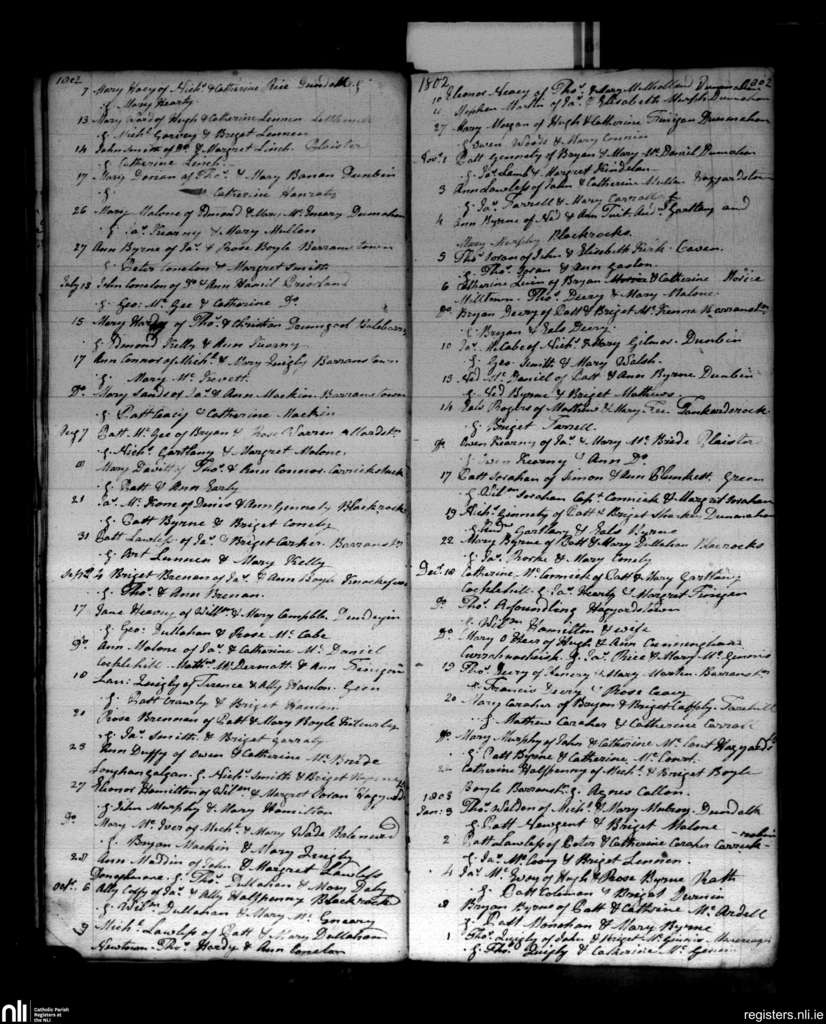 1802
7 Mary Hoey of Nichs. & Catherine Rice Dundalk g
g. Mary Hearty
13 Mary Ward of Hugh & Catherine Lennon
g. Nichs. Garvey & Briget Lennon
14 John Smith of Do. & Margret Linch. Plaister
g. Catherine Linch.
17 Mary Dorian of Thos. & Mary Banan Dunbin
g. Catherine Hanraty
26 Mary Malone of Edmond & Mary Mc. Dumahan
g. Jas. Kearny & Mary Mullen
27 Ann Byrne of Jas. & Rose Boyle Barranstown
g. Peter Conelon & Margret Smith
July 13 John Conelon of Do. & Ann Hamil
g. Geo: Mc. Gee & Catherine Do.
15 Mary of Thos. & Christian
g. Edmond Kelly & Ann Kearny
17 Ann Connor of Michl. & Mary Quigly Barranstown
g. Mary Mc. Kevett.
Do. Mary Sands of Jas. & Ann Mackin Barranstown
g. Patt Craig & Catherine Mackin
Aug 7 Patt Mc. Gee of Bryan & Rose Warren
g. Nichs. Gartlany & Margret Malone.
Mary Devitt of Thos. & Ann Connor. Carrickastuck
g. Patt & Ann Early
21 Ja. Mc. Keone of Denis & Ann Gennety Blackrocks
g. Patt Byrne & Briget Conely
31 Patt Lawless of Jas. & Briget Carher. Barranstn.
g. Art Lennen & Mary Kelly
Septr. 4 Briget Brenan of Jas. & Ann Boyle
g. Thos. & Ann Brenan.
17 Jane Heavey of Willm. & Mary Campble
g. Geo: Dullahan & Rose Mc. Cabe
Do. Ann Malone of Jas. & Catherine Mc. Daniel
Cocklehill. Mathw. Mc. Dermott & Ann Finegan
18 Law: Quigly of Terence & Ally Hanlon.
g. Patt Crawly & Briget Hamion
21 Rose Brennan of Patt & Mary Boyle
g. Jas. Smith. & Briget Garraty
23 Ann Duffy of Owen & Catherine Mc. Bride
g. Nichs. Smith & Briget
27 Elenor Hamilton of Wilm. & Margret Soran Haggardn.
g. John Murphy & Mary Hamilton
Do. Mary Mc. Iver of Michl. & Mary Wade
g. Bryan Mackin & Mary Quigly
28 Ann Maddin of John & Margret Lawless
g. Thos. Dullahan & Mary Daly
Octr. 6 Ally Coffy of Jas. & Ally Halfpenny Blackrock
g. Wilm. Dullahan & Mary Mc.
9 Michl. Lawless of Patt & Mary Dullahan
Newtown. Thos. Hardy & Ann Conelon
1802
1802
10 Elenor Neary of Thos. & Mary Mc. Mullan Dunmahan
11 Stephen Martin of Jas. & Elisabeth Murphy Dunmahon
27 Mary Morgan of Hugh & Catherine Finigan Dunmahan
g. Owen Woods & Mary
Novr. 1 Patt Gennety of Bryan & Mary Mc. Daniel Dumahon
g. Jas. Lamb & Margret Kindelan
3 Ann Lawless of John & Catherine Mullen Haggardston
g. Jas. Farrell & Mary Carroll
4 Ann Byrne of Ned & Ann Tuit. And. Gartlany and
Mary Murphy Blackrocks.
5 Thos. Soran of John & Elisabeth Kirk. Caven
g. Thos. Soran & Ann Gaston
6 Catherine Quin of Bryan & Catherine
Milltown. Thos. Deery & Mary Malone.
Do. Bryan Deery of Patt & Briget Mc. Kenna Barranstn.
g. Bryan & Jale Deery.
10 Jas. McCabe of Nichs. & Mary Gilmor. Dunbin
g. Geo: Smith & Mary Walsh.
13 Ned Mc. Daniel of Patt & Ann Byrne Dunbin
g. Ned Byrne & Briget Mathews.
14 Jale Rogers of Matthew & Mary Fee Tankardsrock
g. Briget Farrell.
Do. Owen Kearny of Jas. & Mary Mc. Bride Plaister
g. Owen Kearny & Ann Do.
17 Patt Sorahan of Simon & Ann Plunkett. Green
g. Wilm. Sorahan Cath. Cormick & Margret Sorahan
19 Nichs. Gennety of Patt & Briget Dunmahan
g. Gartlan & Jale Byrne
22 Mary Byrne of Patt & Mary Dullahan Blacrocks
g. Jas. Rorke & Mary Conely
Decr. 10 Catherine Mc. Cormick of Patt & Mary Gartlany
Cocklehill. g. Jas. Hearty & Margret Finigan
Do. Thos. A foundling Haggardstown
g. Wilm. Hamilton & wife
Do. Mary O Hare of Hugh & Ann Cunningham
g. Jas. Rice & Mary Mc. Ginnis
19 Thos. Deery of Henery & Mary Martin Barranstn.
g. Francis Deery & Rose Ceary
20 Mary Caraher of Bryan & Briget
g. Mathew Caraher & Catherine
Do. Mary Murphy of John & Catherine Mc. Court Haggards.
g. Patt Byrne & Catherine Mc. Court.
Catherine Halfpenny of Michl. & Briget Boyle
Boyle Barranstn. g. Agnes Callan.
1803
Jan: 3 Thos. Weldon of Michl. & Mary Mulroy. Dundalk
g. Patt Newgent & Briget Malone
2 Patt Lawless of Peter & Catherine Caraher
g. Jas. Mc. Cooy & Briget Lennen.
4 Jas. Mc. Evoy of Hugh & Rose Byrne Rath
g. Patt Coleman & Briget
8 Bryan Byrne of Patt & Catherine Mc. Ardell
g. Patt Monahan & Mary Byrne
1 Thos. Quigly of John & Briget Mc. Ginnis
g. Thos. Quigly & Catherine Mc.
nli
Catholic Parish
Registers at
the NLI
registers.nli.ie